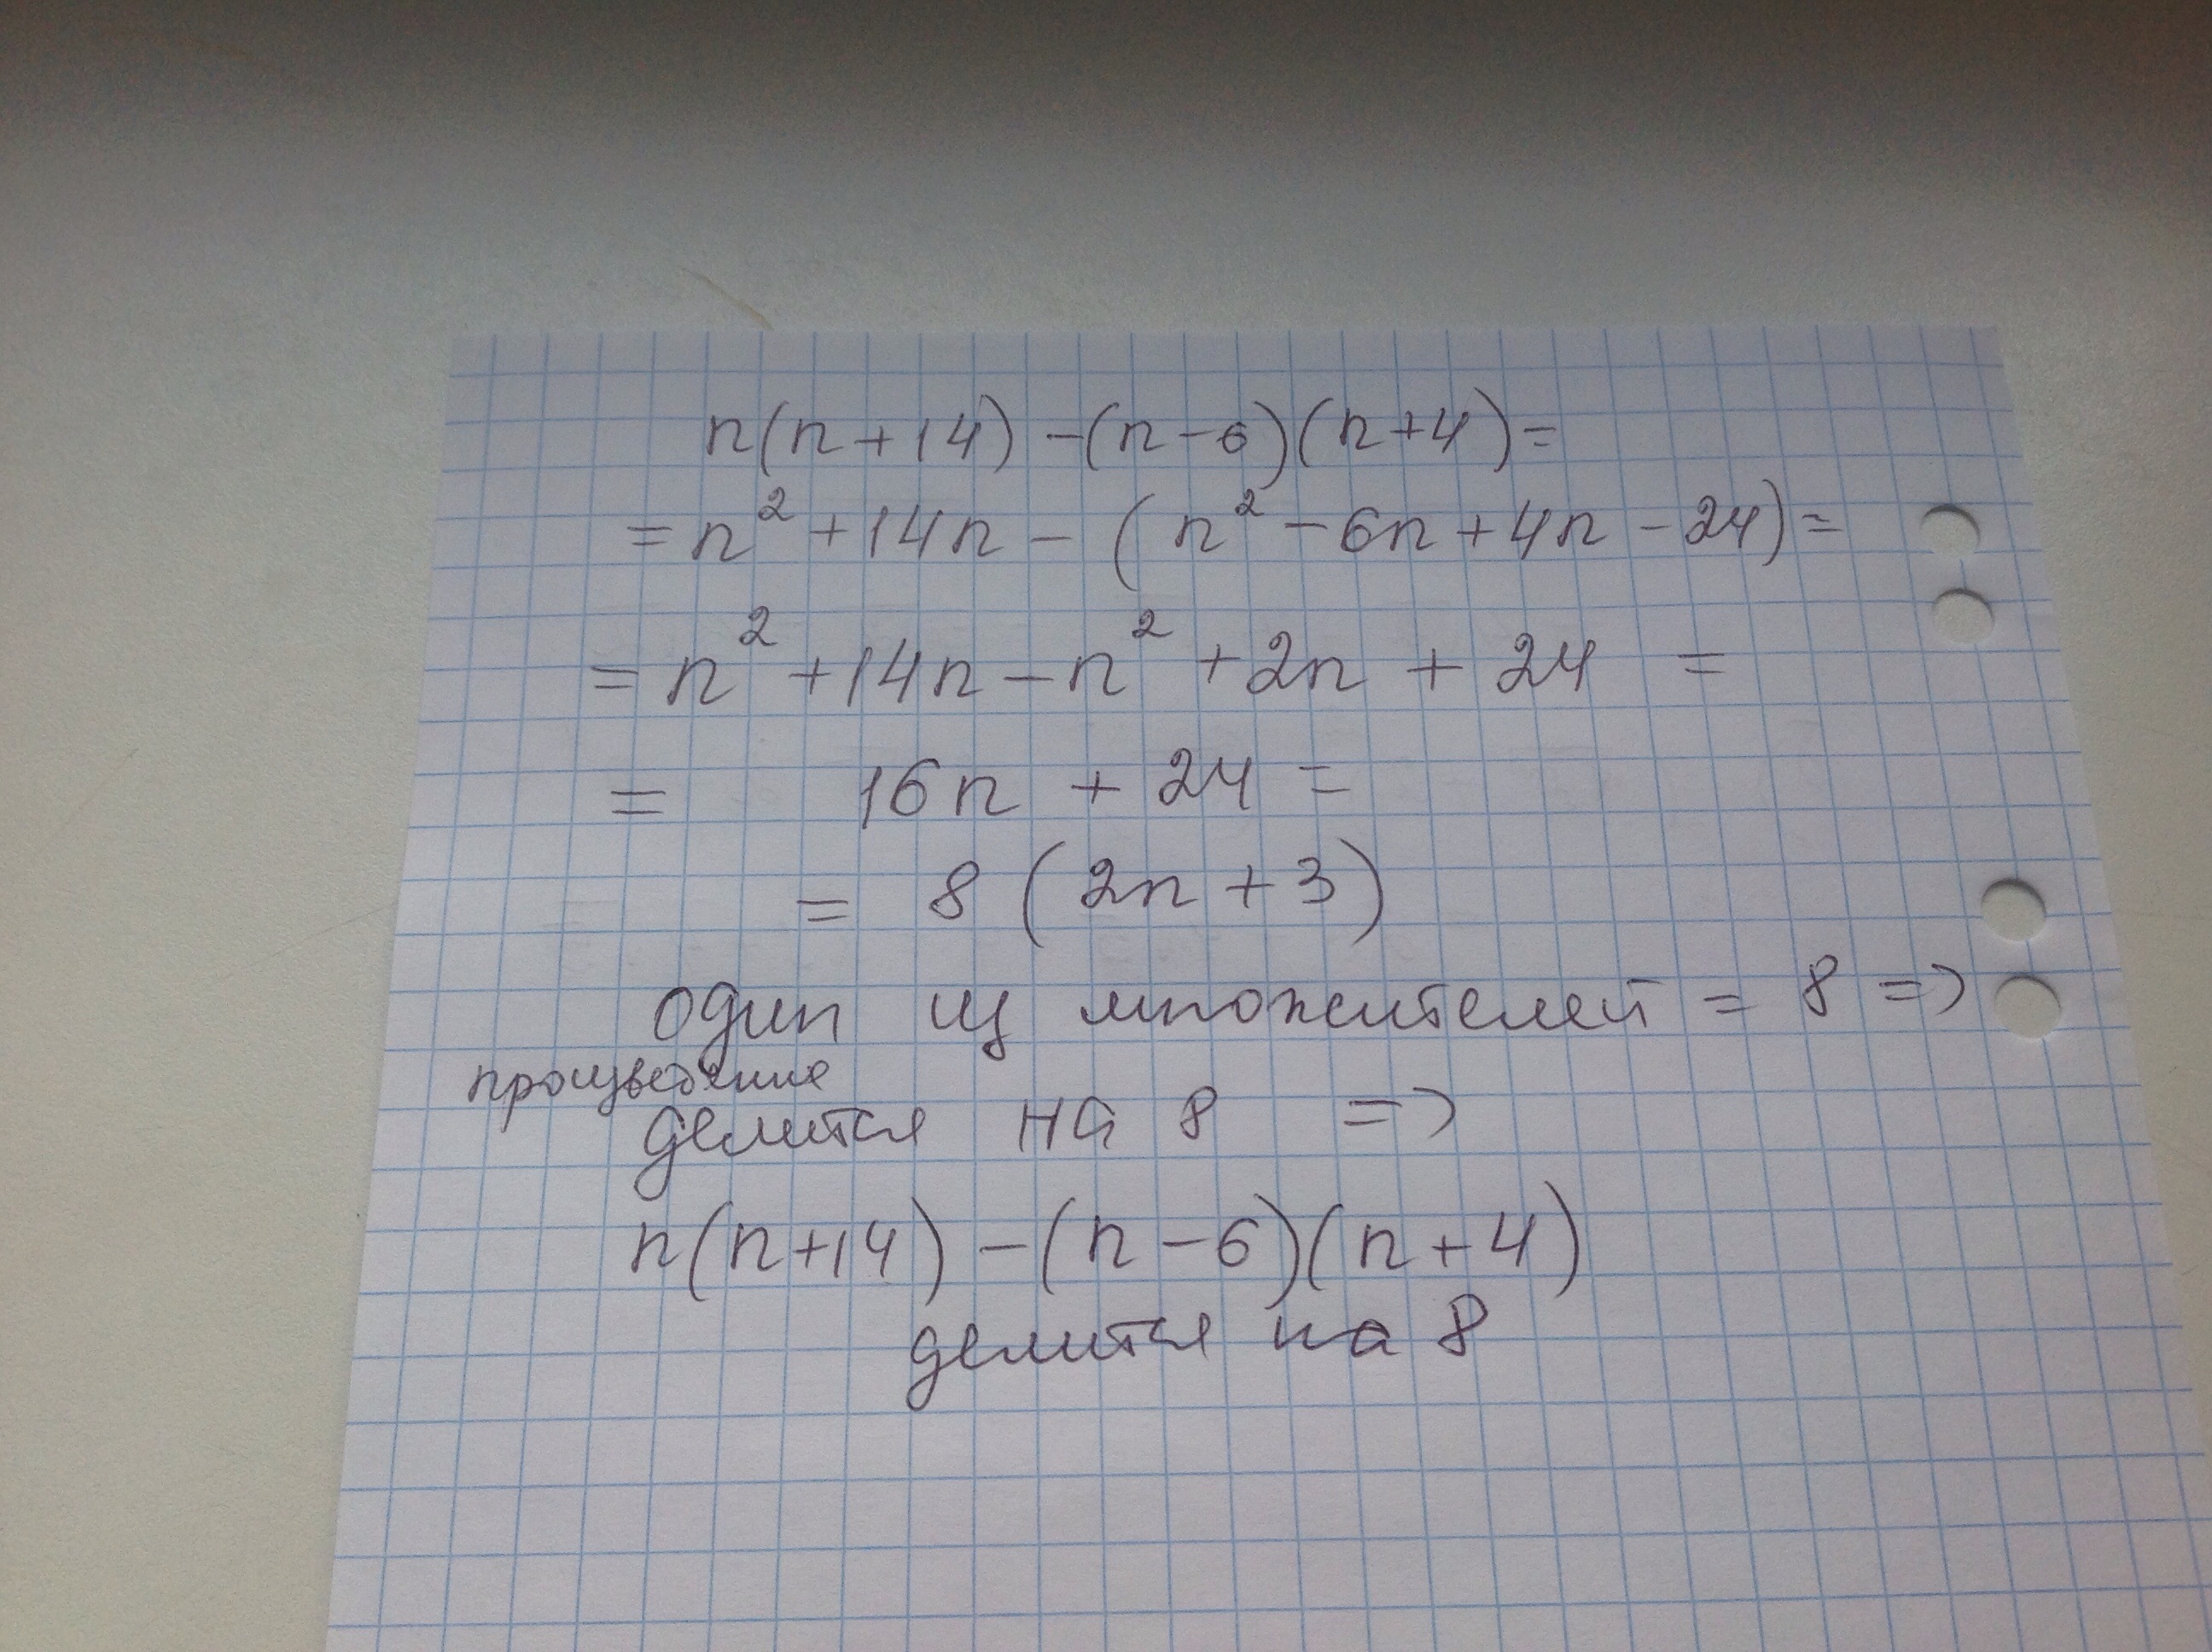 n(n+14)-(n-6)(n+4)=
=n²+14n-(n²-6n+4n-24)=
=n²+14n-n²+2n+24=
=16n+24=
=8(2n+3)
один из множителей = 8 =>
произведение
делится на 8 =>
n(n+14)-(n-6)(n+4)
делится на 8